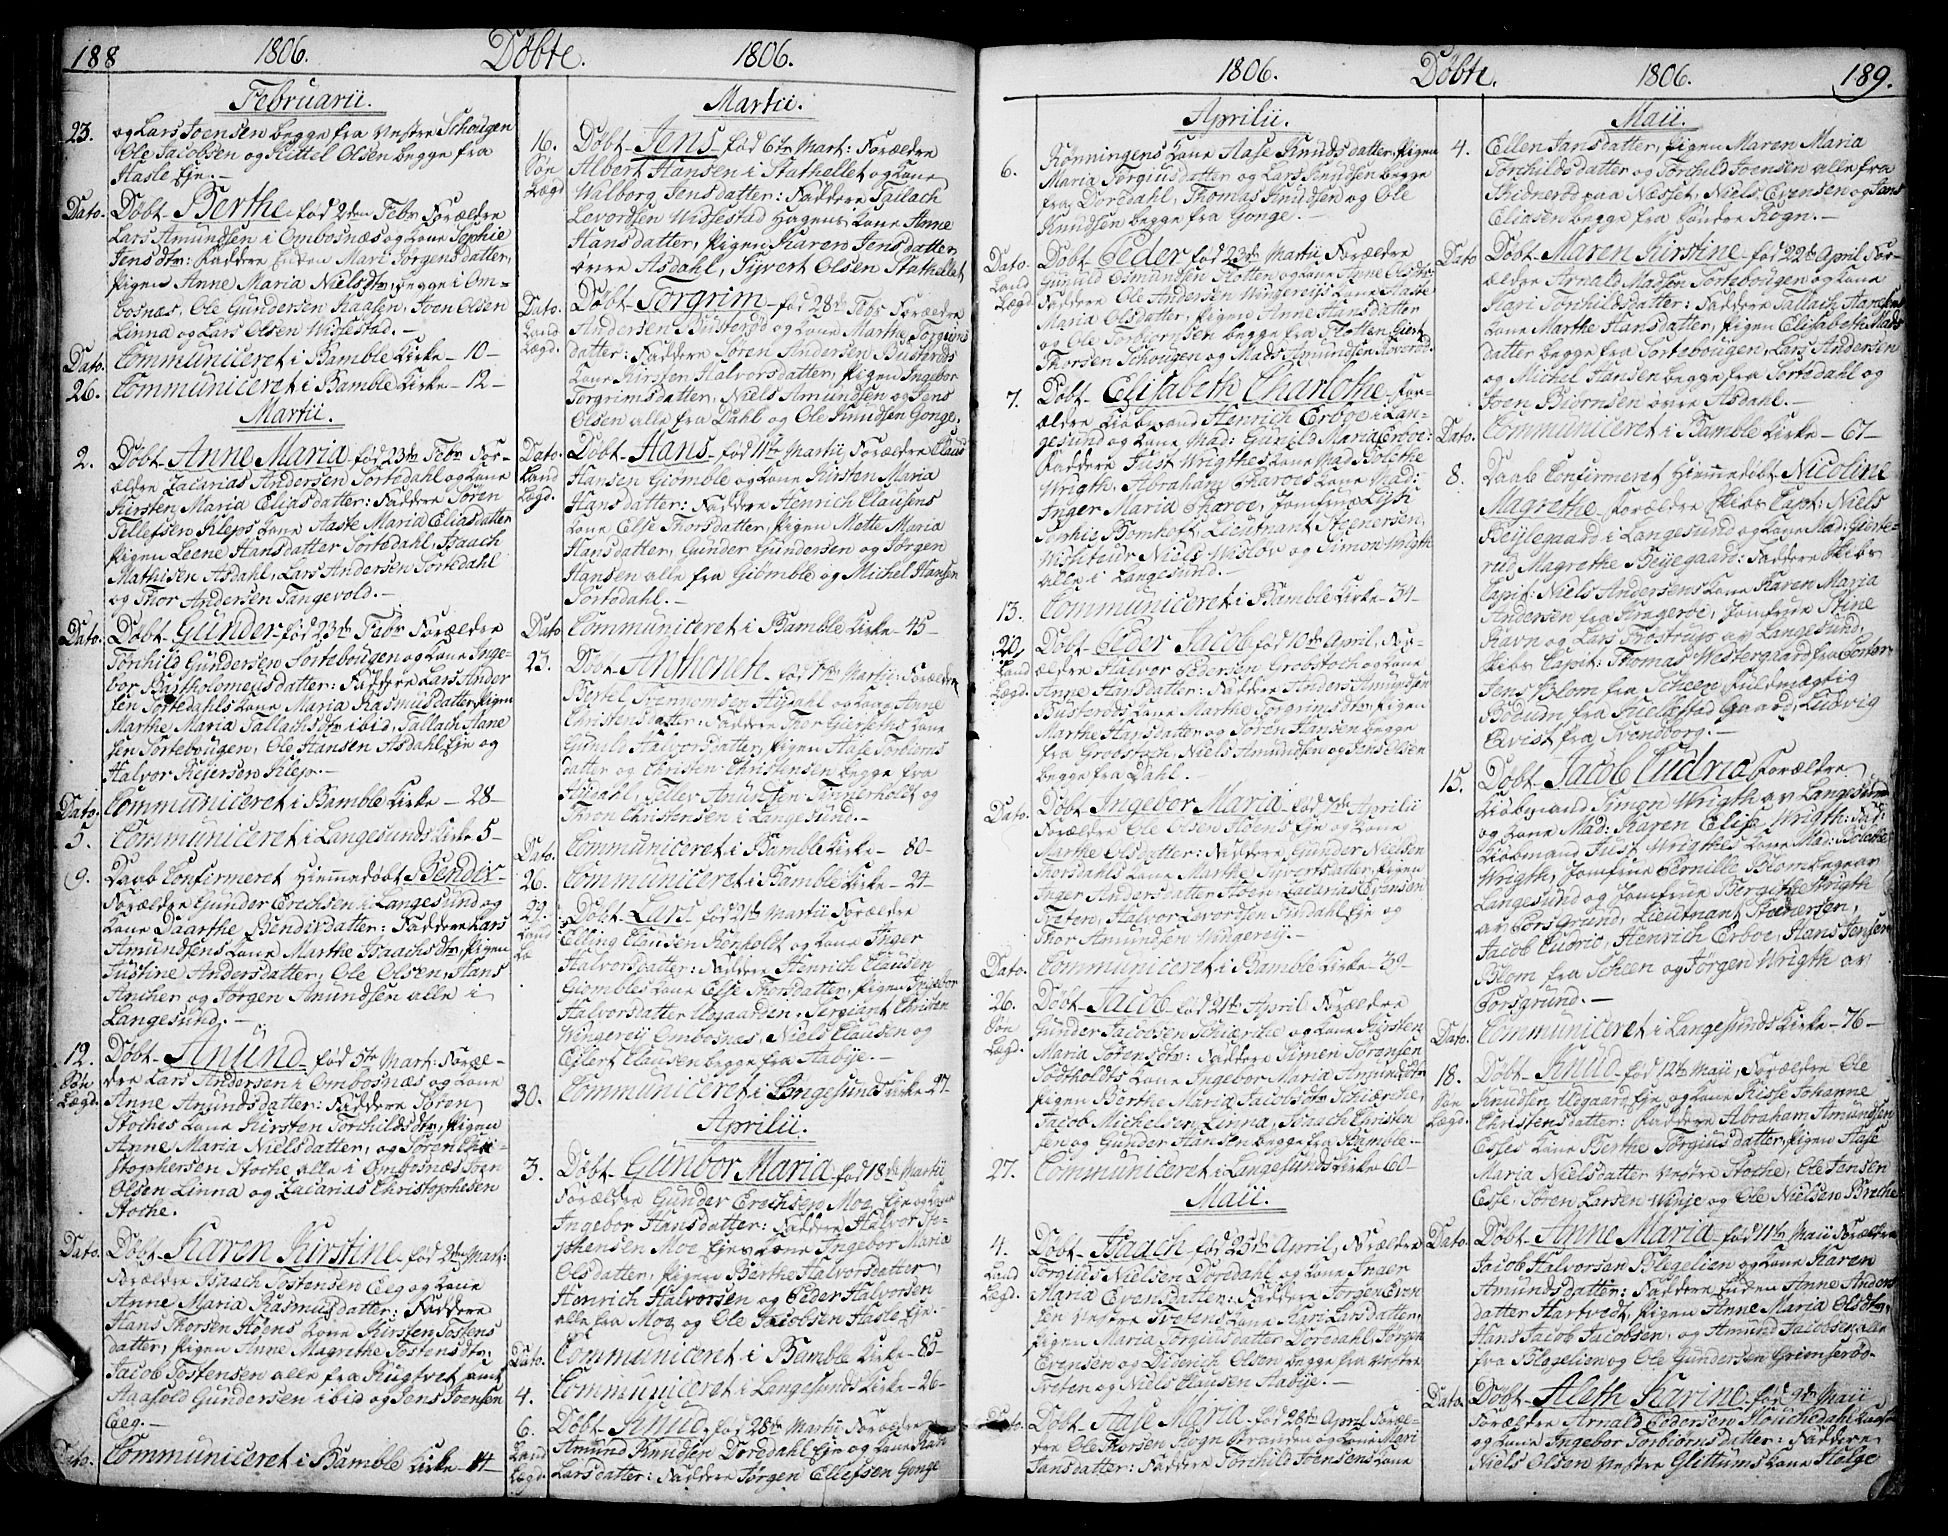 188 1806. Döbte. 1806.
Februarii.
23. og Lars Joensen begge fra Vestre Schougen
Ole Jacobsen og Kittel Olsen begge fra
Hasle Eje.-
Dato. Döbt Berthe fød 2den Febr Forældre
Lars Amundsen i Ombosnæs og Kone Sophie
Jensdtr: Faddere Enken Mari Jørgensdatter,
Pigen Anne Maria Nielsdtr, begge i Om-
bosnæs, Ole Gundersen Kaasen, Joen Olsen
Linna og Lars Olsen Wissestad.-
Dato. Communiceret i Bamble Kirke - 10-
26. Communiceret i Bamble Kirke - 12-
Martii.
2. Döbt Anne Maria fød 23de Febr For-
ældre Zacarias Andersen Sortedahl og Kone
Kirsten Maria Eliasdatter: Faddere Søren
Tellefsen Kleps Kone Aaste Maria Eliasdatter
Pigen Leene Hansdatter Sortedahl, Isaach
Mathisen Asdahl, Lars Andersen Sortedahl
og Thor Andersen Tangevold.-
Dato. Döbt Gunder fød 23de Febr Forældre
Torchild Gundersen Sortebougen og Kone Inge-
bor Bartholomeusdatter: Faddere Lars Ander
sen Sortedahls Kone Maria Rasmusdatter, Pigen
Marthe Maria Tallachsdtr ibid, Tallach Aane
sen Sortebougen, Ole Hansen Asdahl Eje og
Halvor Kejersen Klep.-
Dato. Communiceret i Bamble Kirke - 28-
5. Communiceret i Langesunds Kirke 5-
9. Daab Confirmeret Hiemmedöbt Bendix-
Forældre Gunder Erechsen i Langesund og
Kone Daarthe Bendixdatter: Faddere Lars
Amundsens Kone Marthe Isaachsdtr, Pigen
Justine Andersdatter, Ole Olsen, Hans
Ancher og Jørgen Amundsen alle i
Langesund.-
12. Döbt Amund fød 5te Mart: Foræl-
Søn dre Lars Andersen i Ombosnæs og Kone
Lægd. Anne Amundsdatter: Faddere Søren
Stoches Kone Kirsten Torchildsdtr, Pigen
Anne Maria Nielsdatter, og Søren Chri-
stophersen Stoche alle i Ombosnæs Joen
Olsen Linna og Zacarias Christophesen
Stoche.
Dato. Döbt Karen Kirstine fød 2den Mart:
Forældre Isaach Tostensen Eeg og Kone
Anne Maria Rasmusdatter: Faddere
Hans Thorsen Aaens Kone Kirsten Tostens
datter, Pigen Anne Magrethe Tostensdtr:
Jacob Tostensen alle fra Rugtvet, amt
Aasold Gundersen ibid og Jens Joensen
Eeg.-
Dato. Communiceret i Bamble Kirke - 14-
Martii.
16. Döbt Jens fød 6te Mart: Forældre
Søn Albert Hansen i Stathellet og Kone
Lægd Walborg Jensdatter: Faddere Tallach
Levordsen Wissestad Hagens Kone Anne
Hansdatter, Pigen Karen Jensdatter
øvre Asdahl, Syvert Olsen Stathellet
Dato. Döbt Torgrim fød 28de Febr Forældre
Land Andersen Busterød og Kone Marthe Torgrims
Lægd. datter: Faddere Søren Andersen Busterøds
Kone Kirsten Halvorsdatter, Pigen Ingebor
Torgrimsdatter, Niels Amundsen og Jens
Olsen alle fra Dahl og Ole Knudsen Gonge.
Dato. Döbt Hans fød 11te Martii, Forældre Claus
Land Hansen Giömble og Kone Kirsten Maria
Lægd. Hansdatter: Faddere Henrich Clausens
Kone Else Thorsdatter, Pigen Mette Maria
Hansdatter, Gunder Gundersen og Jørgen
Hansen alle fra Giömble og Michel Hansen
Sortedahl.-
Dato Communiceret i Bamble Kirke - 45-
23. Döbt Anthonete fød 17de Martii: Forældre
Bertel Svennomsen Aasdahl og Kone Anne
Christensdatter: Faddere Thor Gierseths Kone
Gunild Halvorsdatter, Pigen Aase Torbiörns
datter og Christen Christensen begge fra
Asdahl, Tellev Amundsen Tvinerholdt og
Tron Christensen i Langesund.-
Dato. Communiceret i Bamble Kirke - 80-
26. Communiceret i Bamble Kirke - 24-
29. Döbt Lars fød 21de Martii Forældre
Land Elling Clausen Kenholt og Kone Inger
Halvorsdatter: Faddere Henrich Clausen
Giombles Kone Else Thorsdatter, Pigen Ingebor
Halvorsdatter Udgaarden, Serviant Christen
Wingereij Ombosnæs, Niels Clausen og
Ejlert Clausen begge fra Aabije.-
30. Communiceret i Langesunds Kirke 27-
Aprilii.
3. Döbt Gunbor Maria fød 18de Martii
Forældre Gunder Erechsen Moe Eje og Kone
Ingebor Hansdatter: Faddere Halvor Ste-
phensen Moe Ejes Kone Ingebor Maria
Olsdatter, Pigen Berthe Halvorsdatter,
Henrich Halvorsen og Peder Halvorsen
alle fra Moe og Ole Jacobsen Hasle Eje-
Dato. Communiceret i Bamble Kirke - 85-
4. Communiceret i Langesunds Kirke - 26-
6. Döbt Knud fød 28de Martii Forældre
Land Amund Knudsen Doredahl Eje og Kone Kari
Lægd Larsdatter: Faddere Jørgen Ellefsen Gonge
1806. Döbte. 1806. 189.
Aprilii.
6. Rönningens Kone Aase Knudsdatter, Pigen
Maria Torgiusdatter og Lars Knudsen begge
fra Doredahl, Thomas Knudsen og Ole
Knudsen begge fra Gonge.-
Dato. Döbt Peder fød 23de Martii Forældre
Land Gunuld Osmundsen Flotten og Kone Anne Olsdtr:
Lægd. Faddere Ole Andersen Wingereijs Kone Aaste
Maria Olsdatter, Pigen Anne Hansdatter
og Ole Torbiornsen begge fra Flotten Giert
Thorsen Schougen og Mads Amundsen Roverød.
7. Döbt Elisabeth Charlothe For-
ældre Kiöbmand Henrich Erboe i Lan-
gesund og Kone Mad: Gunild Maria Erboe:
Faddere Just Wrigthes Kone Mad Bolethe
Wrigth, Abraham Charoes Kone Mad:
Inger Maria Charoe, Jomfrue Lijs
Sophie Bomhoff, Lieutnant Steenersen,
Wisiteur Niels Wisløv og Simon Wrigth
alle i Langesund.-
13. Communiceret i Bamble Kirke - 34-
20. Döbt Peder Jacob fød 10de April, For-
Land ældre Halvor Pedersen Grobstoch og Kone
Lægd. Anne Hansdatter: Faddere Anders Amundsen
Busterøds Kone Marthe Torgrimsdtr, Pigen
Marthe Hansdatter og Søren Hansen begge
fra Grobstoch, Niels Amundsen og Jens Olsen
begge fra Dahl.-
Dato. Döbt Ingebor Maria fød 7de Aprilii
Forældre Ole Olsen Aaens Eje og Kone
Marthe Olsdatter: Faddere Gunder Nielsen
Thorsdahls Kone Marthe Syversdatter, Pigen
Inger Andersdatter Aaen, Zacarias Evensen
Treten, Halvor Levordsen Findahl Eje og
Thor Amundsen Wingereij.-
Dato. Communiceret i Bamble Kirke - 39-
26. Döbt Jacob fød 21de April Forældre
Søn Gunder Jacobsen Schierche og Kone Kirsten
Lægd. Maria Sørensdtr: Faddere Simen Sørensen
Sødtholdts Kone Ingebor Maria Amundsdtr
Pigen Berthe Maria Jacobsdtr Schierche,
Jacob Michelsen Linna, Isaach Christen
sen og Gunder Hansen begge fra Bamble-
27. Communiceret i Langesunds Kirke 60-
Maii.
4. Döbt Isaach fød 25de April, Forældre
Land Torgius Nielsen Doredahl og Kone Inger
Lægd. Maria Evensdatter: Faddere Jørgen Even
sen Vestre Tretens Kone Kari Larsdatter,
Pigen Maria Torgiusdatter Doredahl, Jørgen
Evensen og Diderich Olsen begge fra Vestre
Treten og Niels Clausen Aabije.-
Dato. Döbt Aase Maria fød 28de April Foræl-
dre Ole Thorsen Rogn Stranden og Kone Mari
Jansdatter: Faddere Torchild Joensens Kone
Maii.
4. Ellen Jansdatter, Pigen Maren Maria
Torchildsdatter og Torchild Joensen alle fra
Skidnerød paa Næsset, Niels Evensen og Jens
Eliasen begge fra Søndre Rogn.-
Dato Döbt Maren Kirstine fød 22de April For-
ældre Arnold Madsen Sortebougen og Kone
Mari Torchildsdatter: Faddere Tallach Aanesens
Kone Marthe Hansdatter, Pigen Elisabeth Mads
datter begge fra Sortebougen, Lars Andersen
og Michel Hansen begge fra Sortedahl og
Joen Biörnsen øvre Asdahl.-
Dato. Communiceret i Bamble Kirke - 67-
8. Daab Confirmeret Hiemmedöbt Nicoline
Magrethe Forældre Skibs Capt: Niels
Beijlegaard i Langesund og Kone Mad: Gierte-
rud Magrethe Beijegaard: Faddere Skibs
Capit: Niels Andersens Kone Karen Maria
Andersen fra Kragerøe, Jomfrue Stine
Ravn og Lars Trostrup av Langesund,
Skibs Capit: Thomas Westergaard fra Porter,
Jens Blom fra Scheen Fuldmægtig
Bodum fra Fielestad Gaard, Ludvig
Qvist fra Svenborg.-
15. Döbt Jacob Cudrio Forældre
Kiöbmand Simon Wrigth av Langesund
og Kone Mad: Karen Elise Wrigth: Fad:
Kiöbmand Just Wrigthes Kone Mad: Bolethe
Wrigth, Jomfrue Pernille Blom begge av
Langesund og Jomfrue Bergithe Wrigth
av Porsgrund, Lieutnant Steenersen,
Jacob Cudrio, Henrich Erboe, Hans Jensen
Blom fra Scheen og Jørgen Wrigth av
Porsgrund.-
Dato. Communiceret i Langesunds Kirke - 76-
18. Döbt Knud fød 12te Maii, Forældre Ole
Søn Knudsen Udgaard Eje og Kone Risse Johanne
Lægd. Christensdatter: Faddere Abraham Amundsen
Esses Kone Berthe Torgiusdatter, Pigen Aase
Maria Nielsdatter Vestre Stoche, Ole Jensen
Esse, Søren Larsen Winje og Ole Nielsen Brethe
Dato. Döbt Anne Maria fød 11te Maii Forældre
Jacob Halvorsen Blegelien og Kone Karen
Amundsdatter: Faddere Enken Anne Anders
datter Hartvedt, Pigen Anne Maria Olsdtr,
Hans Jacob Jacobsen, og Amund Jacobsen alle
fra Blegelien og Ole Gundersen Grimserød-
Dato. Döbt Aleth Karine fød 9de Maii
Forældre Arnold Pedersen Houchedahl
og Kone Ingebor Torbiörnsdatter: Faddere
Niels Olsen Vestre Glittums Kone Helge